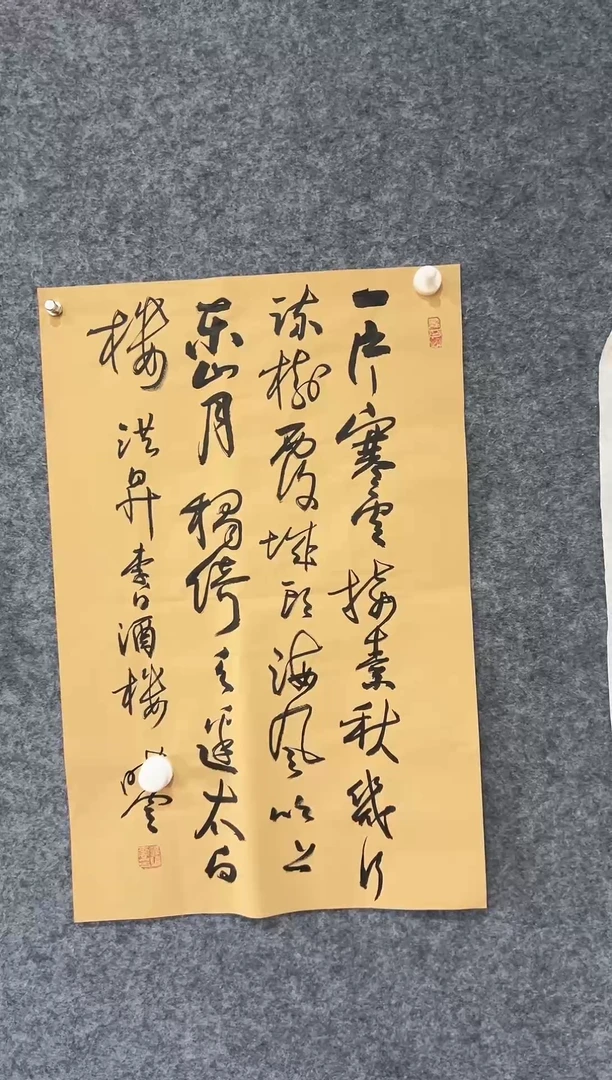 一片寒雲接素秋幾行
疏樹覆城頭海風吹上
東山月獨倚天邊太白
樓 洪昇李白酒樓